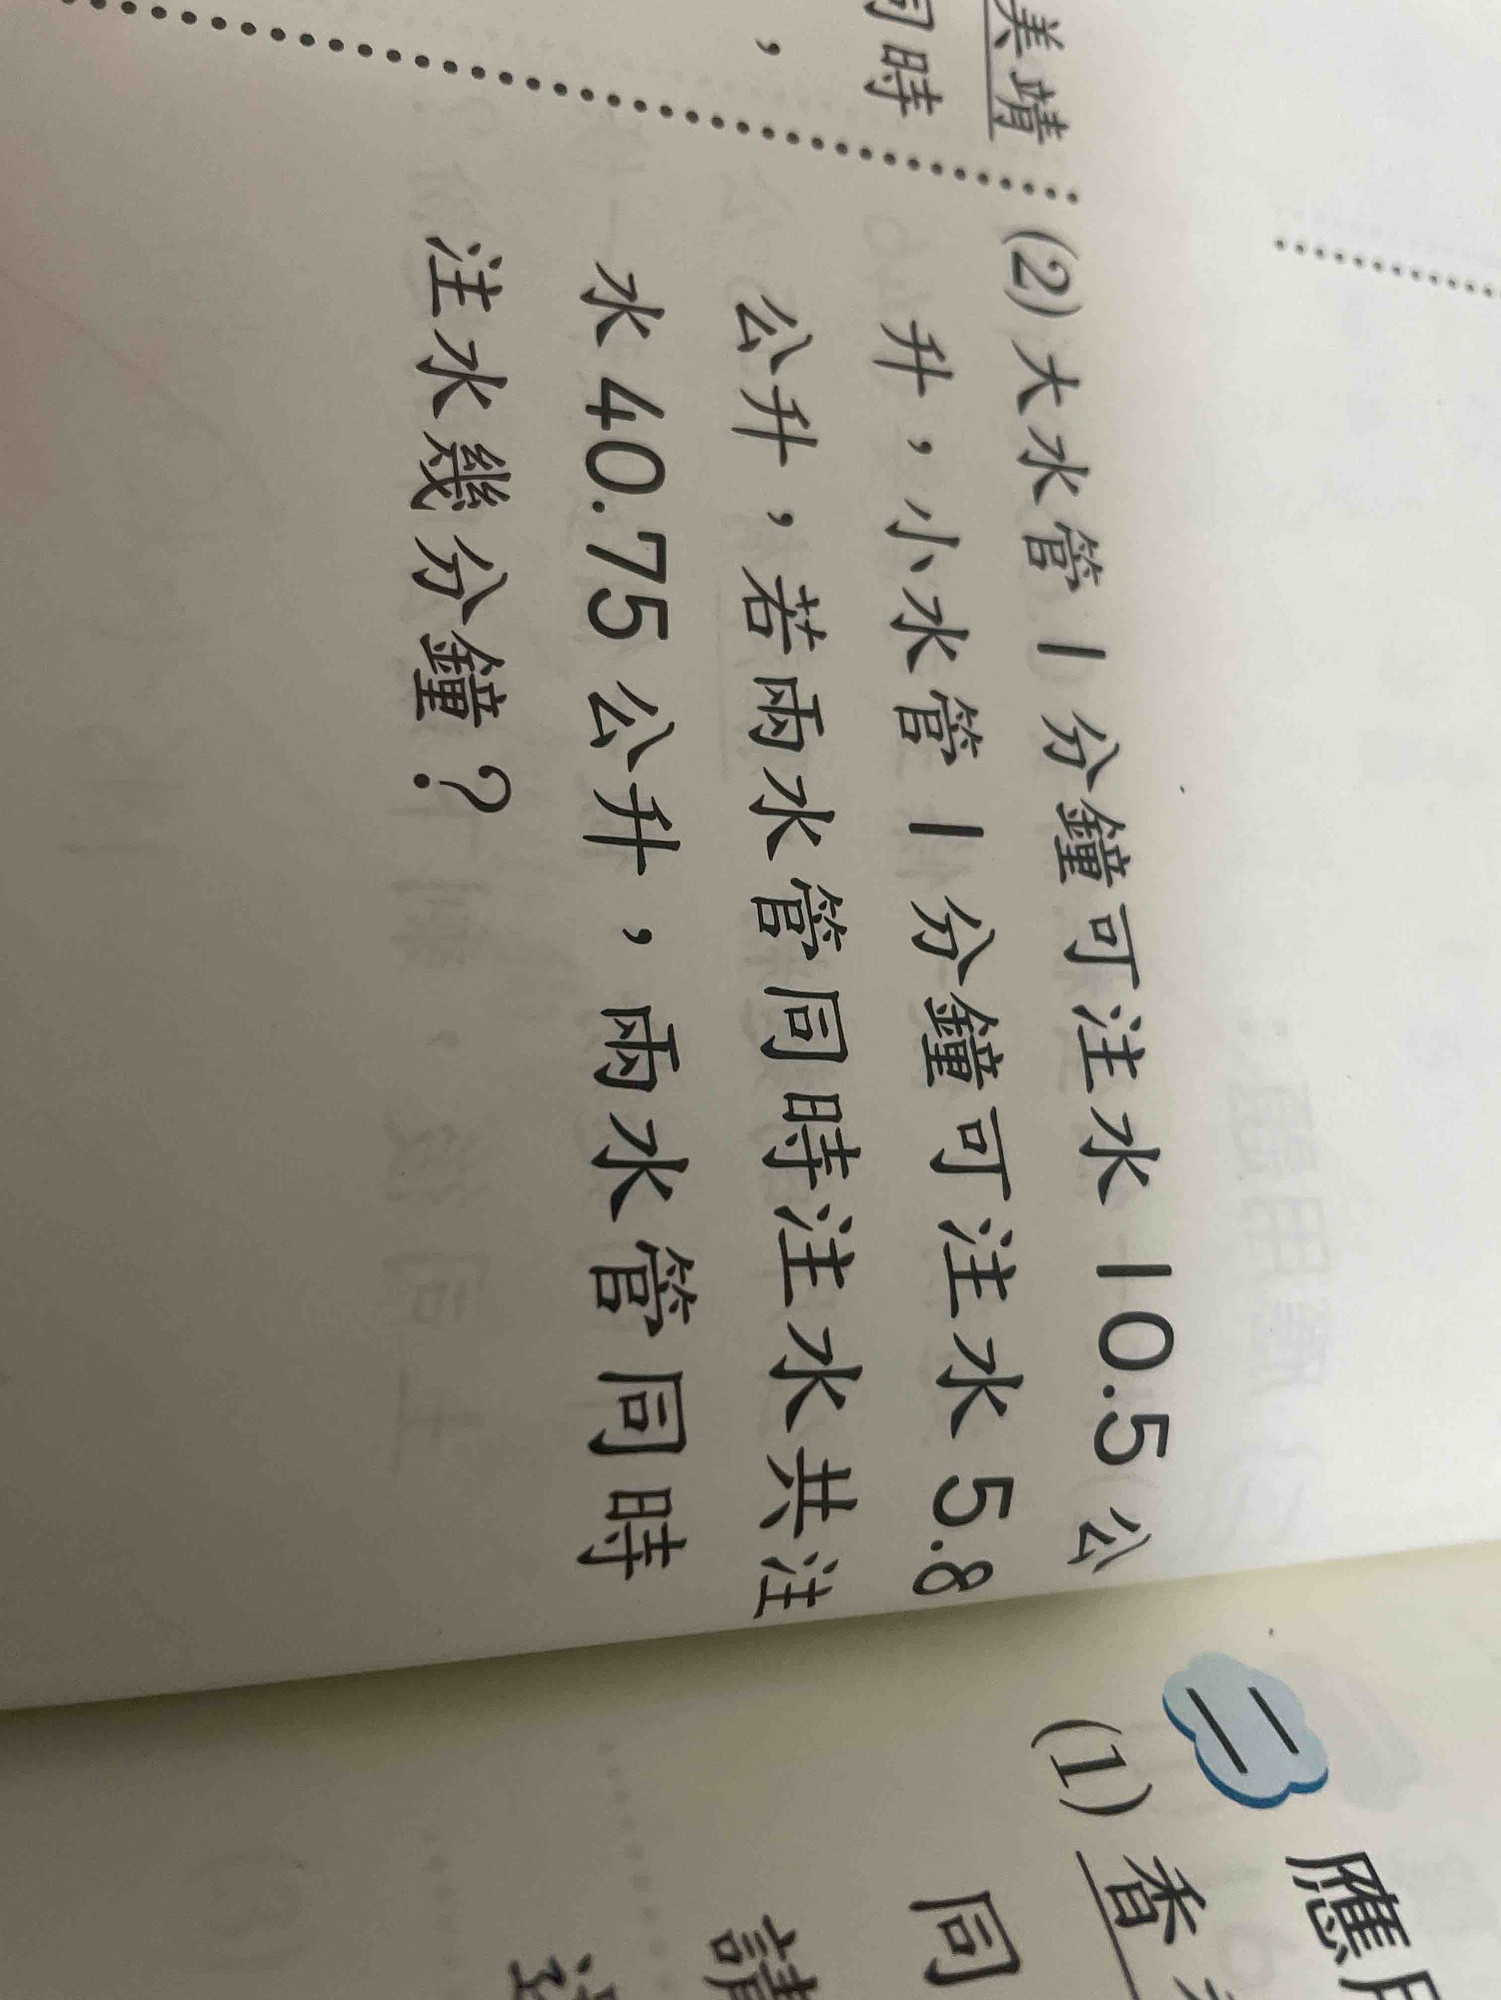 美靖
同時
，
(2)大水管 1 分鐘可注水 10.5 公
升，小水管 1 分鐘可注水 5.8
公升，若兩水管同時注水共注
水 40.75 公升，兩水管同時
注水幾分鐘？
二 應用
(1) 香
同
請